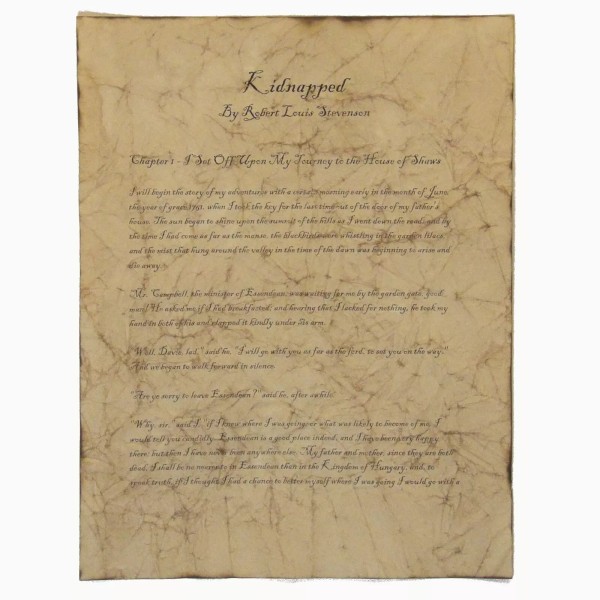 Kidnapped
By Robert Louis Stevenson
Chapter 1 - I Set Off Upon My Journey to the House of Shaws
I will begin the story of my adventures with a certain morning early in the month of June,
the year of grace 1751, when I took the key for the last time out of the door of my father's
house. The sun began to shine upon the summit of the hills as I went down the road; and by
the time I had come as far as the manse, the blackbirds were whistling in the garden lilacs,
and the mist that hung around the valley in the time of the dawn was beginning to arise and
die away.
Mr. Campbell, the minister of Essendean, was waiting for me by the garden gate, good
man! He asked me if I had breakfasted; and hearing that I lacked for nothing, he took my
hand in both of his and clapped it kindly under his arm.
"Well, Davie, lad," said he, "I will go with you as far as the ford, to set you on the way."
And we began to walk forward in silence.
"Are ye sorry to leave Essendean?" said he, after awhile.
"Why, sir," said I, "if I knew where I was going, or what was likely to become of me, I
would tell you candidly. Essendean is a good place indeed, and I have been very happy
there; but then I have never been anywhere else. My father and mother, since they are both
dead, I shall be no nearer to in Essendean than in the Kingdom of Hungary, and, to
speak truth, if I thought I had a chance to better myself where I was going I would go with a